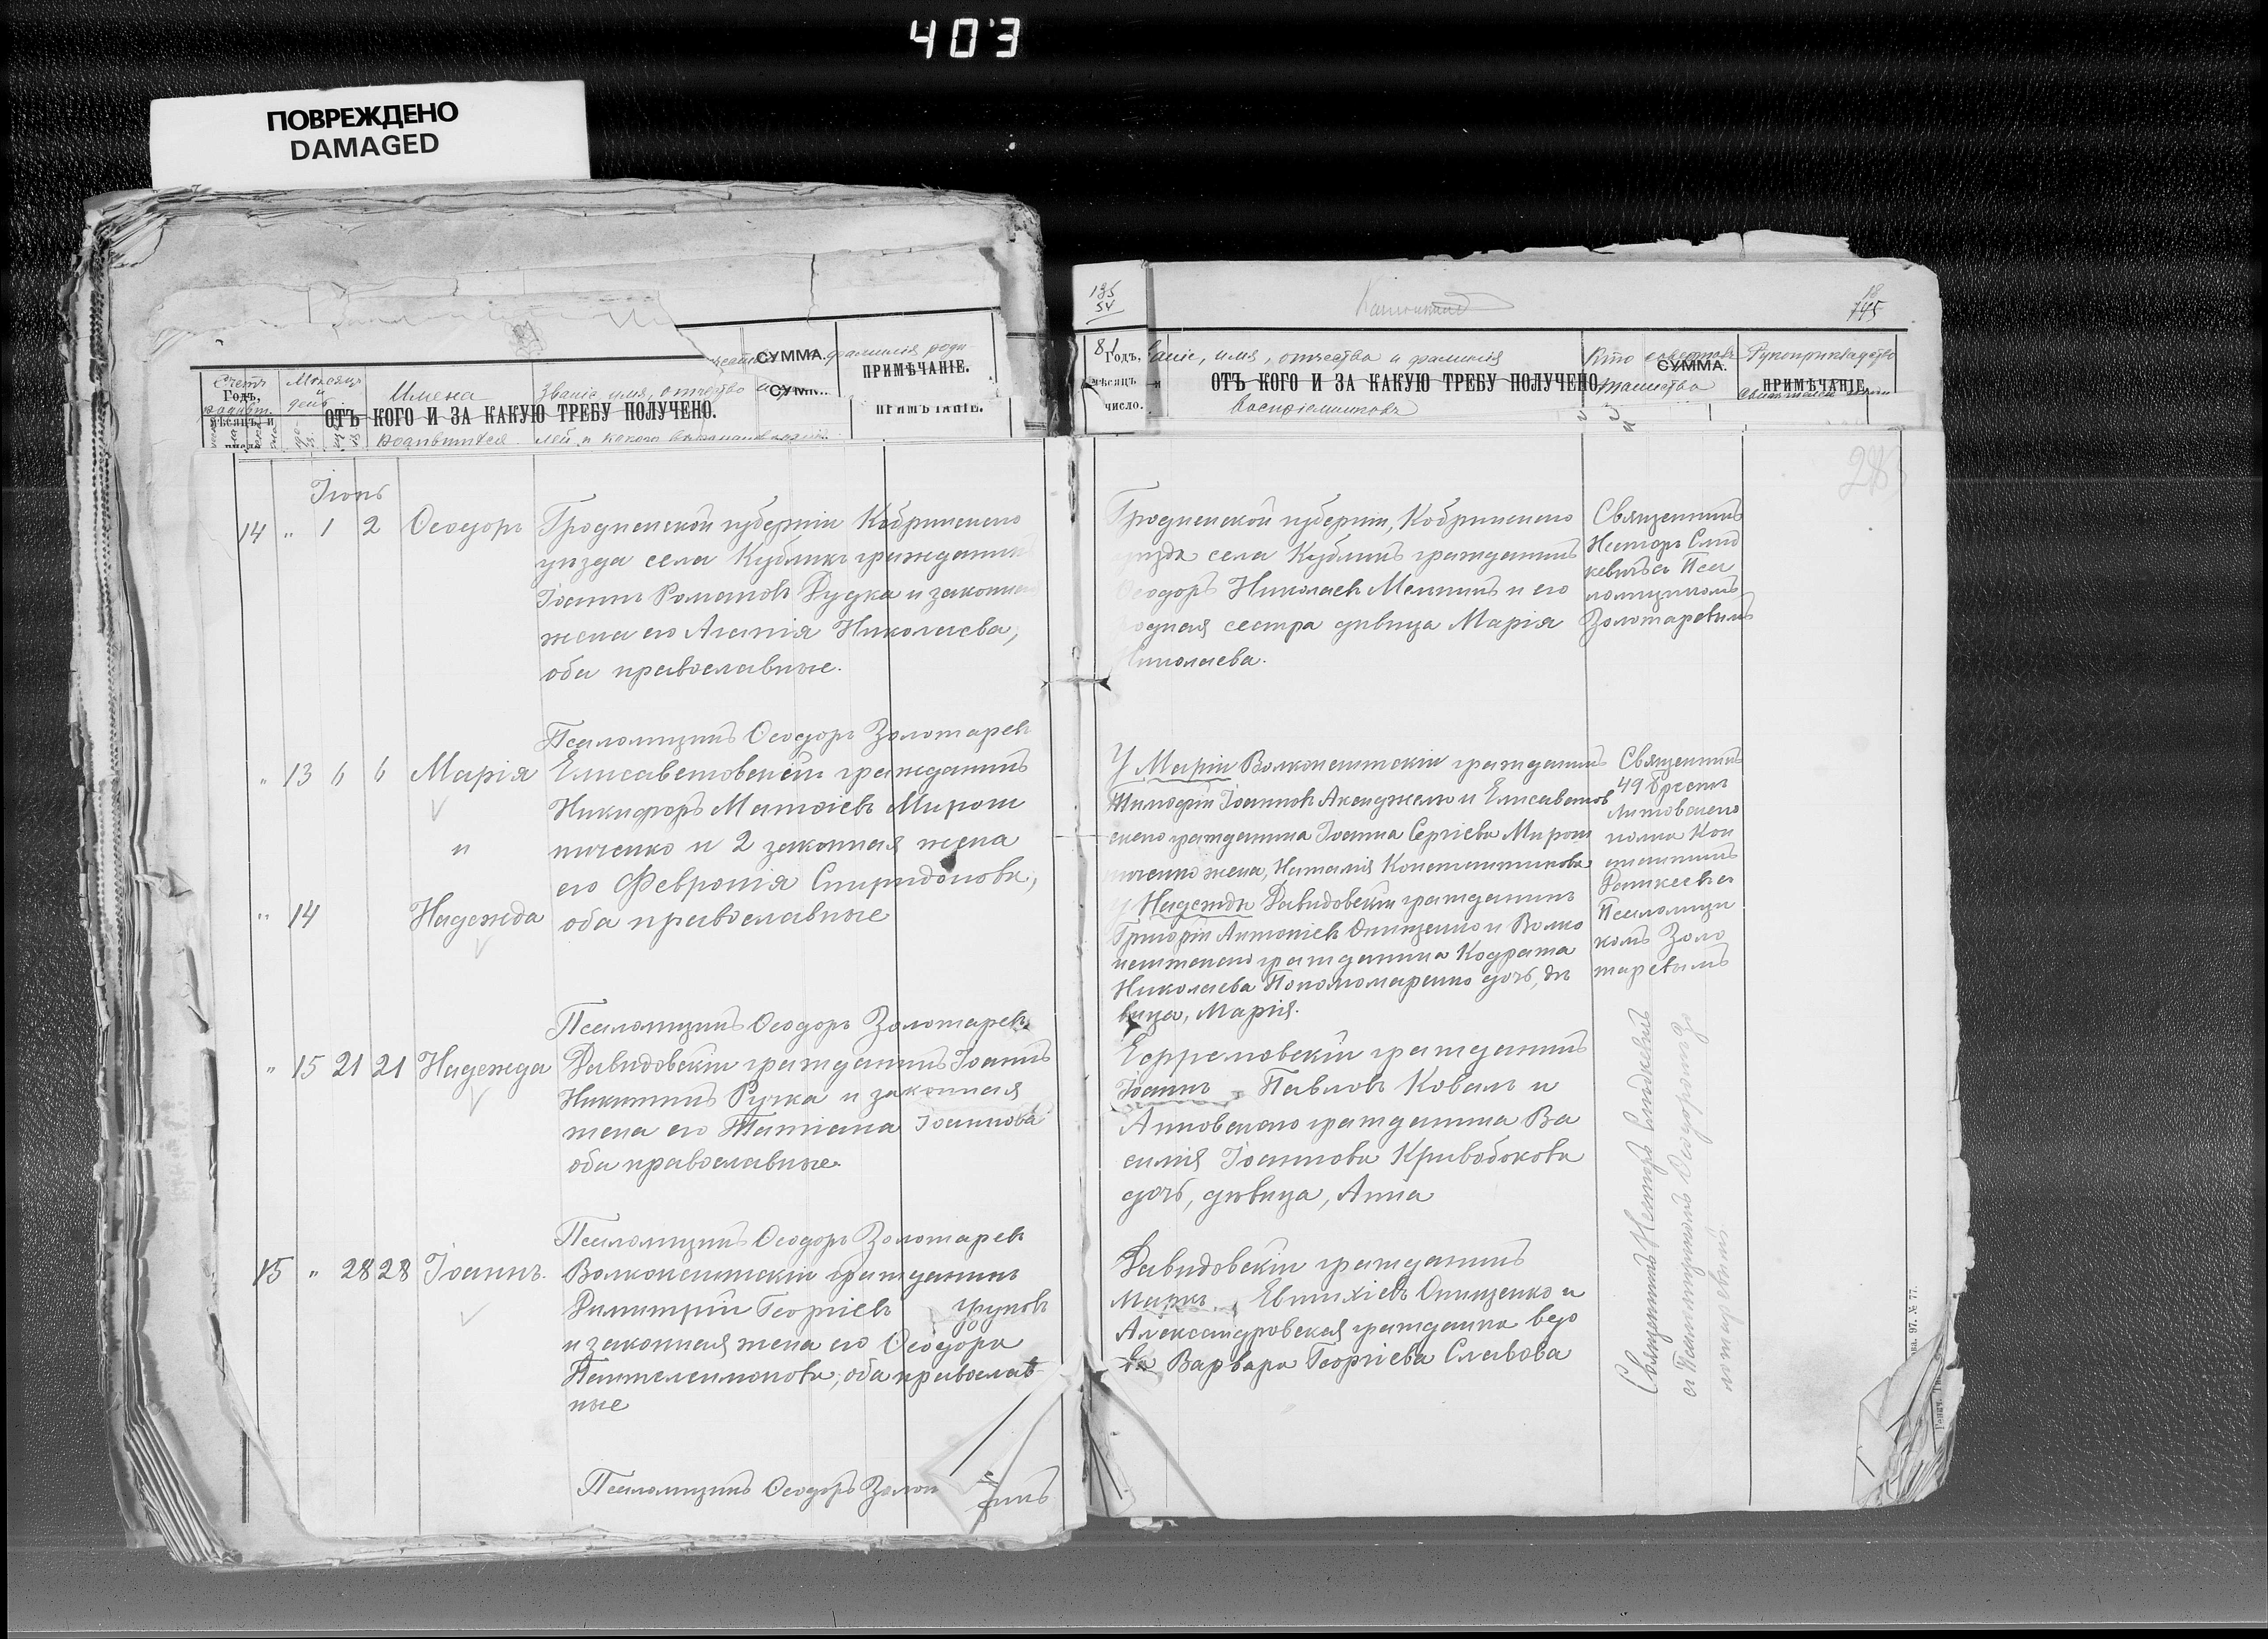 403
ПОВРЕЖДЕНО
DAMAGED
СУММА. фамилія роди
ПРИМѢЧАНІЕ.
Счетъ Мѣсяцъ
Годъ, день Имена Званіе, имя, отчество и
ОТЪ КОГО И ЗА КАКУЮ ТРЕБУ ПОЛУЧЕНО.
мѣсяцъ и
родившихся лей и какого вѣроисповѣданія
Іюнь
14 " 1 2 Ѳеодоръ Гродненской губерніи Кобринскаго
уѣзда села Кубликъ гражданинъ
Іоаннъ Романовъ Дудка и законная
жена его Агапія Николаева,
оба православные.
Псаломщикъ Ѳеодоръ Золотаревъ
" 13 6 6 Марія Елисаветовскій гражданинъ
Никифоръ Матѳіевъ Мирош
и ниченко и 2 законная жена
его Февронія Спиридонова,
" 14 Надежда оба православные
Псаломщикъ Ѳеодоръ Золотаревъ
" 15 21 21 Надежда Давидовскій гражданинъ Іоаннъ
Никитинъ Ручка и законная
жена его Татіана Іоаннова
оба православные.
Псаломщикъ Ѳеодоръ Золотаревъ
15 " 28 28 Іоаннъ. Волконештскій гражданинъ
Димитрій Георгіевъ
и законная жена его Ѳеодора
Пантелеимонова, оба православ
ные
Псаломщикъ Ѳеодоръ Золот
135
54
18
745
283
81
Годъ, мѣсяцъ и число.
званіе, имя, отчество и фамилія
ОТЪ КОГО И ЗА КАКУЮ ТРЕБУ ПОЛУЧЕНО
воспріемниковъ
Кто совершалъ
СУММА.
таинство
Рукоприкладство
ПРИМѢЧАНІЕ.
Гродненской губерніи, Кобринскаго
уѣзда села Кубликъ гражданинъ
Ѳеодоръ Николаевъ Мельникъ и его
родная сестра дѣвица Марія
Николаева.
Священникъ
Несторъ Слюд
кевичъ съ Псал
ломщикомъ
Золотаревымъ
У Маріи Волконештскій гражданинъ
Тимофій Іоанновъ Акенджело и Елисаветов
скаго гражданина Іоанна Сергіева Мирош
ниченко жена, Наталія Константинова
у Надежды Давидовскій гражданинъ
Григорій Антоніевъ Онищенко и Волко
нештскаго гражданина Кодрата
Николаева Пономаренко дочь, дѣ
вица, Марія.
Священникъ
49 Брестъ
Литовскаго
полка Кон
стантинъ
Псаломщи
комъ Золо
таревымъ
Ефремовскій гражданинъ
Іоаннъ Павловъ Коваль и
Анновскаго гражданина Ва
силія Іоаннова Кривобокова
дочь, дѣвица, Анна
Давидовскій гражданинъ
Маркъ Евтихіевъ Онищенко и
Александровская гражданка вдо
ва Варвара Георгіева Славова
Священникъ Несторъ Слюдкевичъ
съ Псаломщикомъ Ѳеодоромъ Зо
лотаревымъ.
97. № 77.